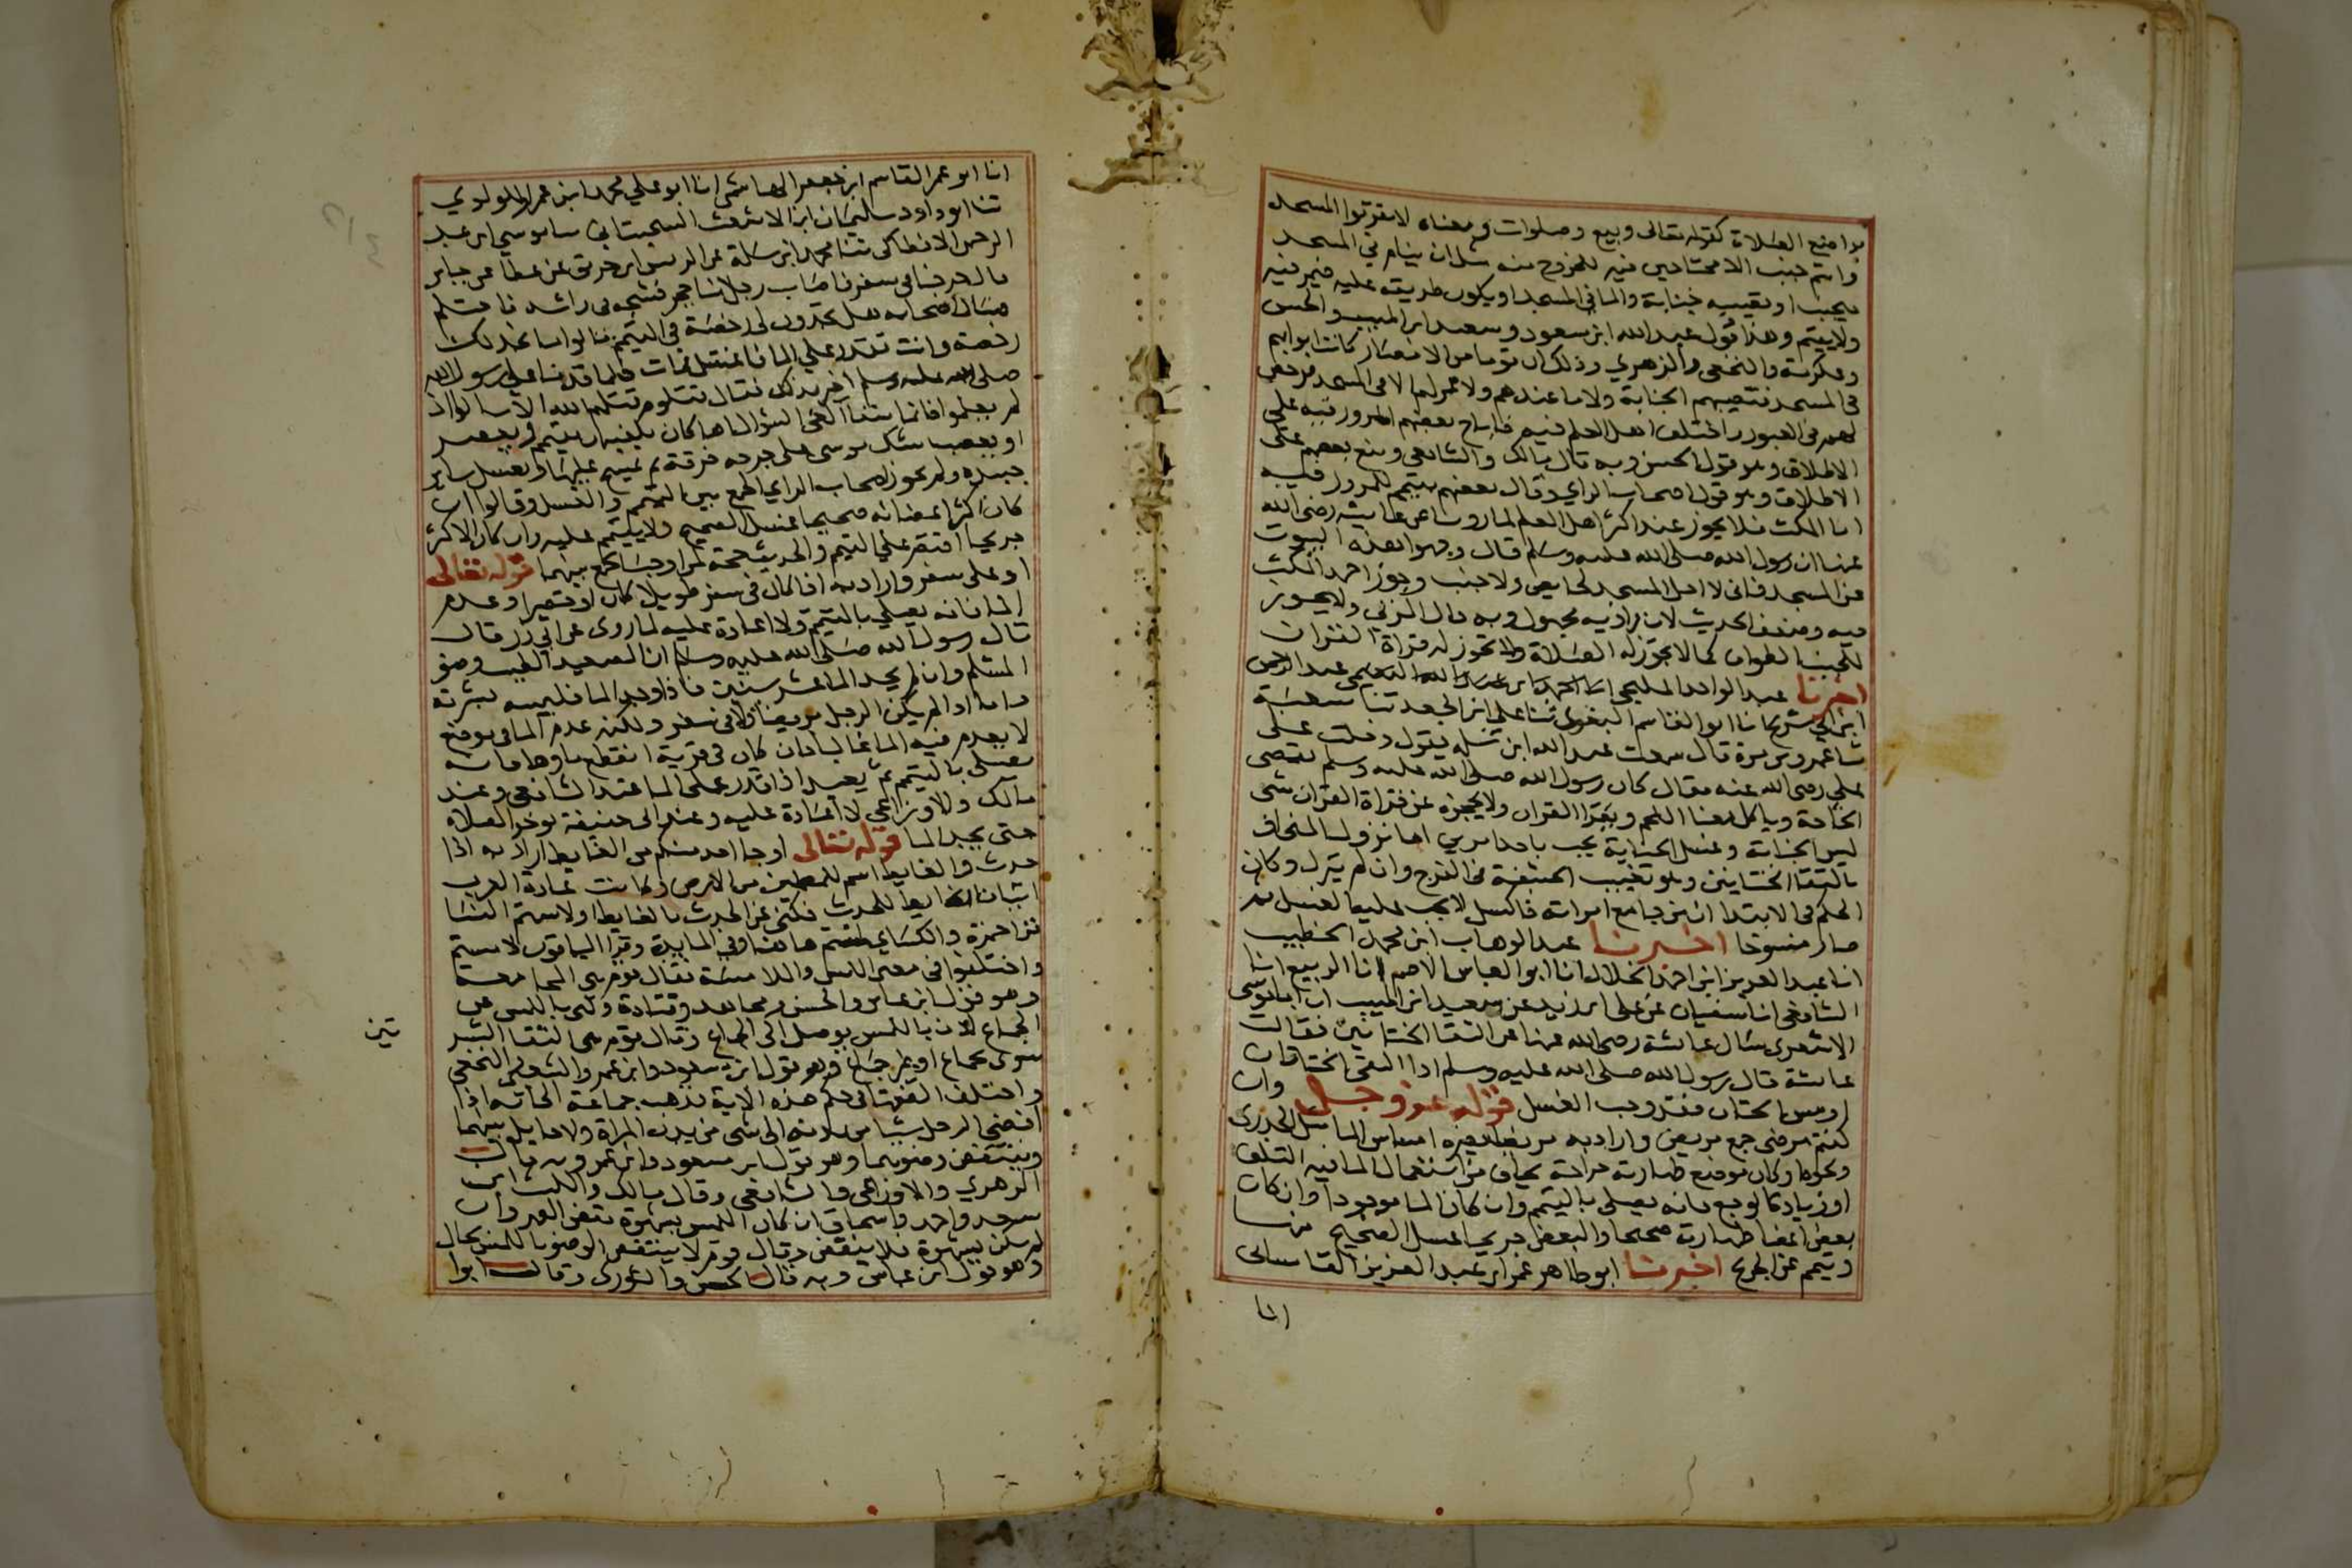 مواضع الصلاة كقوله تعالى وبيع وصلوات ومعناه لا تقربوا المسجد
وانتم جنب الا مجتازين فيه للخروج منه مثل ان ينام في المسجد
فيجنب او تصيبه جنابة والما في المسجد او يكون طريقه عليه فيمر فيه
ولا يقيم وهذا قول عبد الله ابن مسعود وسعيد ابن المسيب والحسن
وعكرمة والنخعي والزهري وذلك ان قوما من الانصار كانت ابوابهم
في المسجد فتصيبهم الجنابة ولا ما عندهم ولا ممر لهم الا في المسجد فرخص
لهم في العبور واختلف اهل العلم فيه فاباح بعضهم المرور فيه على
الاطلاق وهو قول الحسن وبه قال مالك والشافعي ومنع بعضهم على
الاطلاق وهو قول اصحاب الراي وقال بعضهم يتيمم للمرور فيه
اما المكث فلا يجوز عند اكثر اهل العلم لما روينا عن عايشه رضي الله
عنها ان رسول الله صلى الله عليه وسلم قال وجهوا هذه البيوت
عن المسجد فاني لا احل المسجد لحايض ولا جنب وجوز احمد المكث
فيه وضعف الحديث لان راويه مجهول وبه قال المزني ولا يجوز
للجنب الطواف كما لا يجوز له الصلاة ولا تجوز له قراة القران
اخبرنا عبد الواحد المليحي عبد الرحمن
ابن ابي شريح انا ابو القاسم البغوي ثنا علي ابن الجعد ثنا شعبة
عمرو بن مرة قال سمعت عبد الله ابن سلمه يقول دخلت على
علي رضي الله عنه فقال كان رسول الله صلى الله عليه وسلم يقضي
الحاجة وياكل معنا اللحم ويقرا القران ولا يحجزه عن قراة القران شي
ليس الجنابة وغسل الجنابة يجب باحد امرين اما نزول المني او
بالتقا الختانين وهو تغييب الحشفة في الفرج وان لم ينزل وكان
الحكم في الابتدا ان من جامع امراته فاكسل لا يجب عليه الغسل ثم
صار منسوخا اخبرنا عبد الوهاب ابن محمد الخطيب
انا عبد العزيز ابن احمد الخلال انا ابو العباس الاصم انا الربيع انا
الشافعي انا سفيان عن علي ابن زيد عن سعيد ابن المسيب ان ابا موسى
الاشعري سال عائشة رضي الله عنها عن التقا الختانين فقالت
عائشة قال رسول الله صلى الله عليه وسلم اذا التقى الختانان
او مس الختان فقد وجب الغسل قوله عز وجل وان
كنتم مرضى جمع مريض واراد به مريضا يضره امساس الما مثل الجدري
ونحوه او كان موضع طهارته جراحة يخاف من استعمال الما فيه التلف
او زيادة الوجع فانه يصلي بالتيمم وان كان الما موجودا وان كان
بعض اعضا طهارته صحيحا والبعض جريحا غسل الصحيح منها
وتيمم عن الجريح اخبرنا ابو طاهر عمر ابن عبد العزيز القاساني
انا
انا ابو عمر القاسم ابن جعفر الهاشمي انا ابو علي محمد ابن عمر اللولوي
ثنا ابو داود سليمان ابن الاشعث السجستاني ثنا موسى ابن عبد
الرحمن الانطاكي ثنا محمد ابن سلمة عن الزبير ابن خريق عن عطا عن جابر
قال خرجنا في سفر فاصاب رجل منا حجر فشجه في راسه فاحتلم
فسال اصحابه هل تجدون لي رخصة في التيمم فقالوا ما نجد لك
رخصة وانت تقدر على الما فاغتسل فمات فلما قدمنا على رسول الله
صلى الله عليه وسلم اخبر بذلك فقال قتلوه قتلهم الله الا سالوا اذ
لم يعلموا فانما شفا العي السوال انما كان يكفيه ان يتيمم ويعصر
او يعصب شك موسى على جرحه خرقة ثم يمسح عليها ويغسل ساير
جسده ولم يجوز اصحاب الراي الجمع بين التيمم والغسل وقالوا ان
كان اكثر اعضائه صحيحا غسل الصحيح ولا يتيمم عليه وان كان الاكثر
جريحا اقتصر على التيمم والحديث حجة لمن اوجب الجمع بينهما قوله تعالى
او على سفر واراد به اذا كان في سفر طويلا كان او قصيرا وعدم
الما فانه يصلي بالتيمم ولا اعادة عليه لما روي عن ابي ذر قال
قال رسول الله صلى الله عليه وسلم ان الصعيد الطيب وضو
المسلم وان لم يجد الما عشر سنين فاذا وجد الما فليمسه بشرته
واما اذا لم يكن الرجل مريضا ولا في سفر ولكنه عدم الما في موضع
لا يعدم فيه الما غالبا بان كان في قرية انقطع ماوها فانه
يصلي بالتيمم ثم يعيد اذا قدر على الما عند الشافعي وعند
مالك والاوزاعي لا اعادة عليه وعند ابي حنيفة يوخر الصلاة
حتى يجد الما قوله تعالى او جا احد منكم من الغايط اراد به اذا
حدث والغايط اسم للمطمين من الارض وكانت عادة العرب
اتيان الغايط للحدث فكني عن الحدث بالغايط او لامستم النسا
قرا حمزة والكساي لمستم هاهنا وفي المايدة وقرا الباقون لامستم
واختلفوا في معنى اللمس والملامسة فقال قوم هي المجامعة
وهو قول ابن عباس والحسن ومجاهد وقتادة وكني باللمس عن
الجماع لان باللمس يوصل الى الجماع وقال قوم هي التقا البشر
تين
سوى بجماع او بغير جماع وهو قول ابن مسعود وابن عمر والشعبي والنخعي
واختلف الفقها في حكم هذه الاية فذهب جماعة الى انه اذا
افضى الرجل بشي من بدنه الى شي من بدن المراة ولا حايل بينهما
ينتقض وضوهما وهو قول ابن مسعود وابن عمر وبه قال
الزهري والاوزاعي والشافعي وقال مالك والليث ابن
سعد واحمد واسحاق ان كان اللمس بشهوة نقض الطهر وان
لم يكن بشهوة فلا ينقض وقال قوم لا ينتقض الوضو باللمس بحال
وهو قول ابن عباس وبه قال الحسن والثوري وقال ابوا